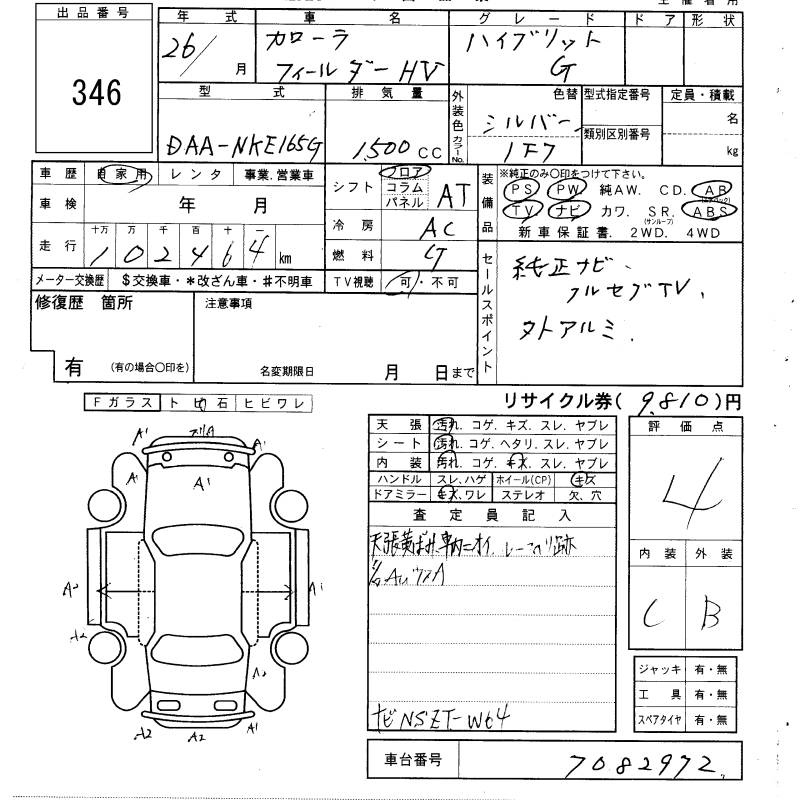 出品番号
346
年式 車名 グレード ドア 形状
26/ 月 カローラ フィールダーHV ハイブリット G
型式 排気量 外装色 色替 型式指定番号 定員・積載
DAA-NKE165G 1,500cc シルバー カラーNo. 1F7 類別区別番号 名 kg
車歴 自家用 レンタ 事業.営業車
車検 年 月
走行 十万 万 千 百 十 一
1 0 2 4 6 4 km
メーター交換歴 $交換車・*改ざん車・♯不明車
シフト フロア コラム パネル AT
冷房 AC
燃料
TV視聴 可・不可
装備品 ※純正のみ〇印をつけて下さい。
PS PW 純AW. CD. AB
TV ナビ カワ. SR. (サンルーフ) ABS
新車保証書. 2WD. 4WD
セールスポイント
純正ナビ、
フルセグTV、
タトアルミ.
修復歴 箇所
有 (有の場合〇印を)
注意事項
名変期限日 月 日まで
リサイクル券(9,810)円
Fガラス トビ石 ヒビワレ
A' A' A' A2 A2 A1 A2 A2 A'
天張 汚れ. コゲ. キズ. スレ. ヤブレ
シート 汚れ. コゲ. ヘタリ. スレ. ヤブレ
内装 汚れ. コゲ. キズ. スレ. ヤブレ
ハンドル スレ、ハゲ ホイール(CP) キズ
ドアミラー キズ、ワレ ステレオ 欠、穴
査定員記入
天張黄ばみ、車内ニオイ、
ナビNSZT-W64
評価点
4
内装 外装
C B
ジャッキ 有・無
工具 有・無
スペアタイヤ 有・無
車台番号 7082972